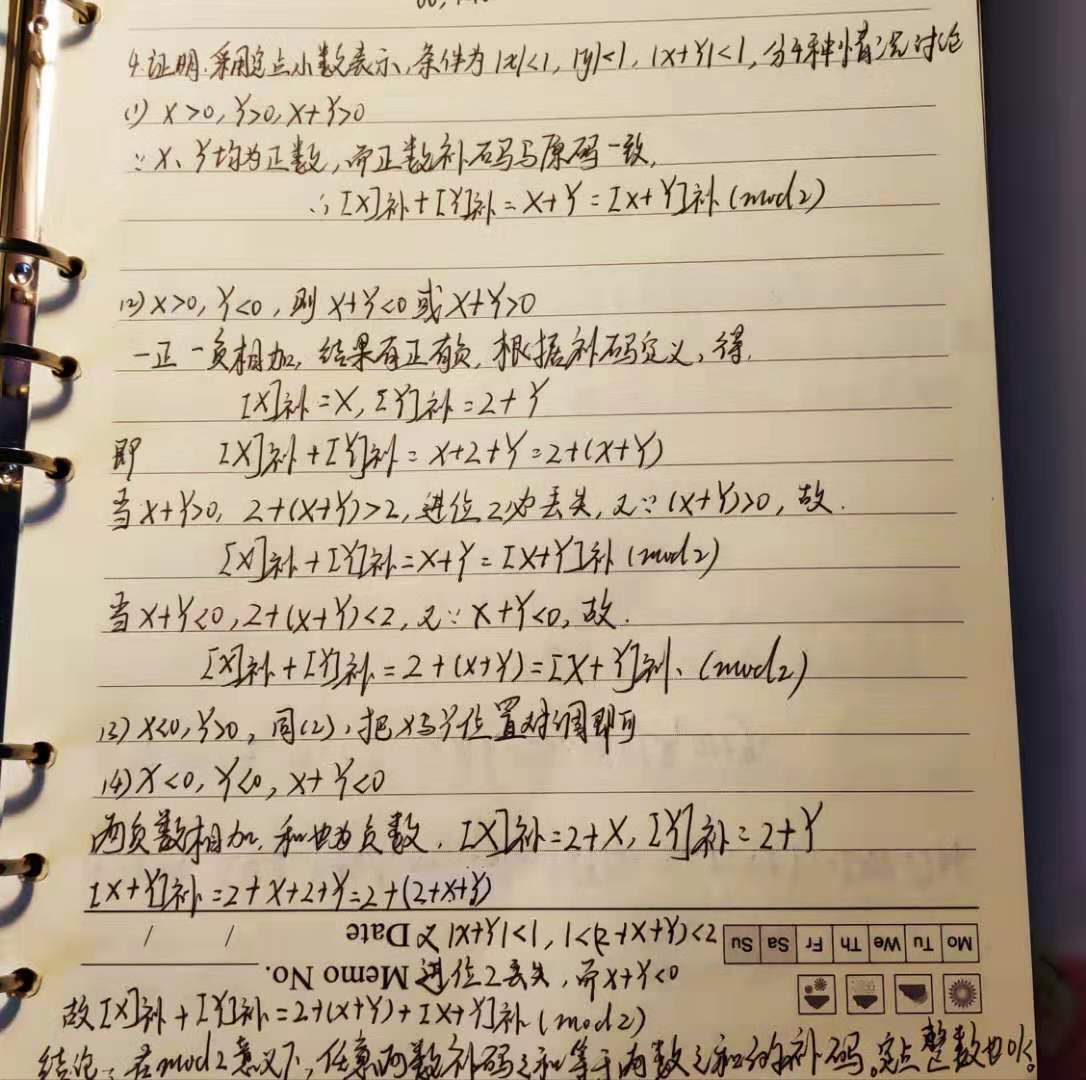 4.证明.采用定点小数表示,条件为|x|<1,|y|<1,|x+Y|<1,分4种情况讨论
(1) X>0,Y>0,X+Y>0
∵X、Y均为正数,而正数补码与原码一致,
∴[X]补+[Y]补=X+Y=[X+Y]补(mod2)
(2) X>0,Y<0,则X+Y<0或X+Y>0
一正一负相加,结果有正有负.根据补码定义,得.
[X]补=X,[Y]补=2+Y
即 [X]补+[Y]补=X+2+Y=2+(X+Y)
当X+Y>0, 2+(X+Y)>2,进位2必丢失,又∵(X+Y)>0,故.
[X]补+[Y]补=X+Y=[X+Y]补(mod2)
当X+Y<0,2+(X+Y)<2,又∵X+Y<0,故.
[X]补+[Y]补=2+(X+Y)=[X+Y]补、(mod2)
(3) X<0,Y>0,同(2),把X与Y位置对调即可
(4) X<0,Y<0,X+Y<0
两负数相加,和也为负数.[X]补=2+X,[Y]补=2+Y
[X+Y]补=2+X+2+Y=2+(2+X+Y)
又|X+Y|<1,1<(2+X+Y)<2
Date
Mo Tu We Th Fr Sa Su
进位2丢失,而X+Y<0
Memo No.
故[X]补+[Y]补=2+(X+Y)+[X+Y]补(mod2)
结论:在mod2意义下,任意两数补码之和等于两数之和的补码。定点整数也ok。